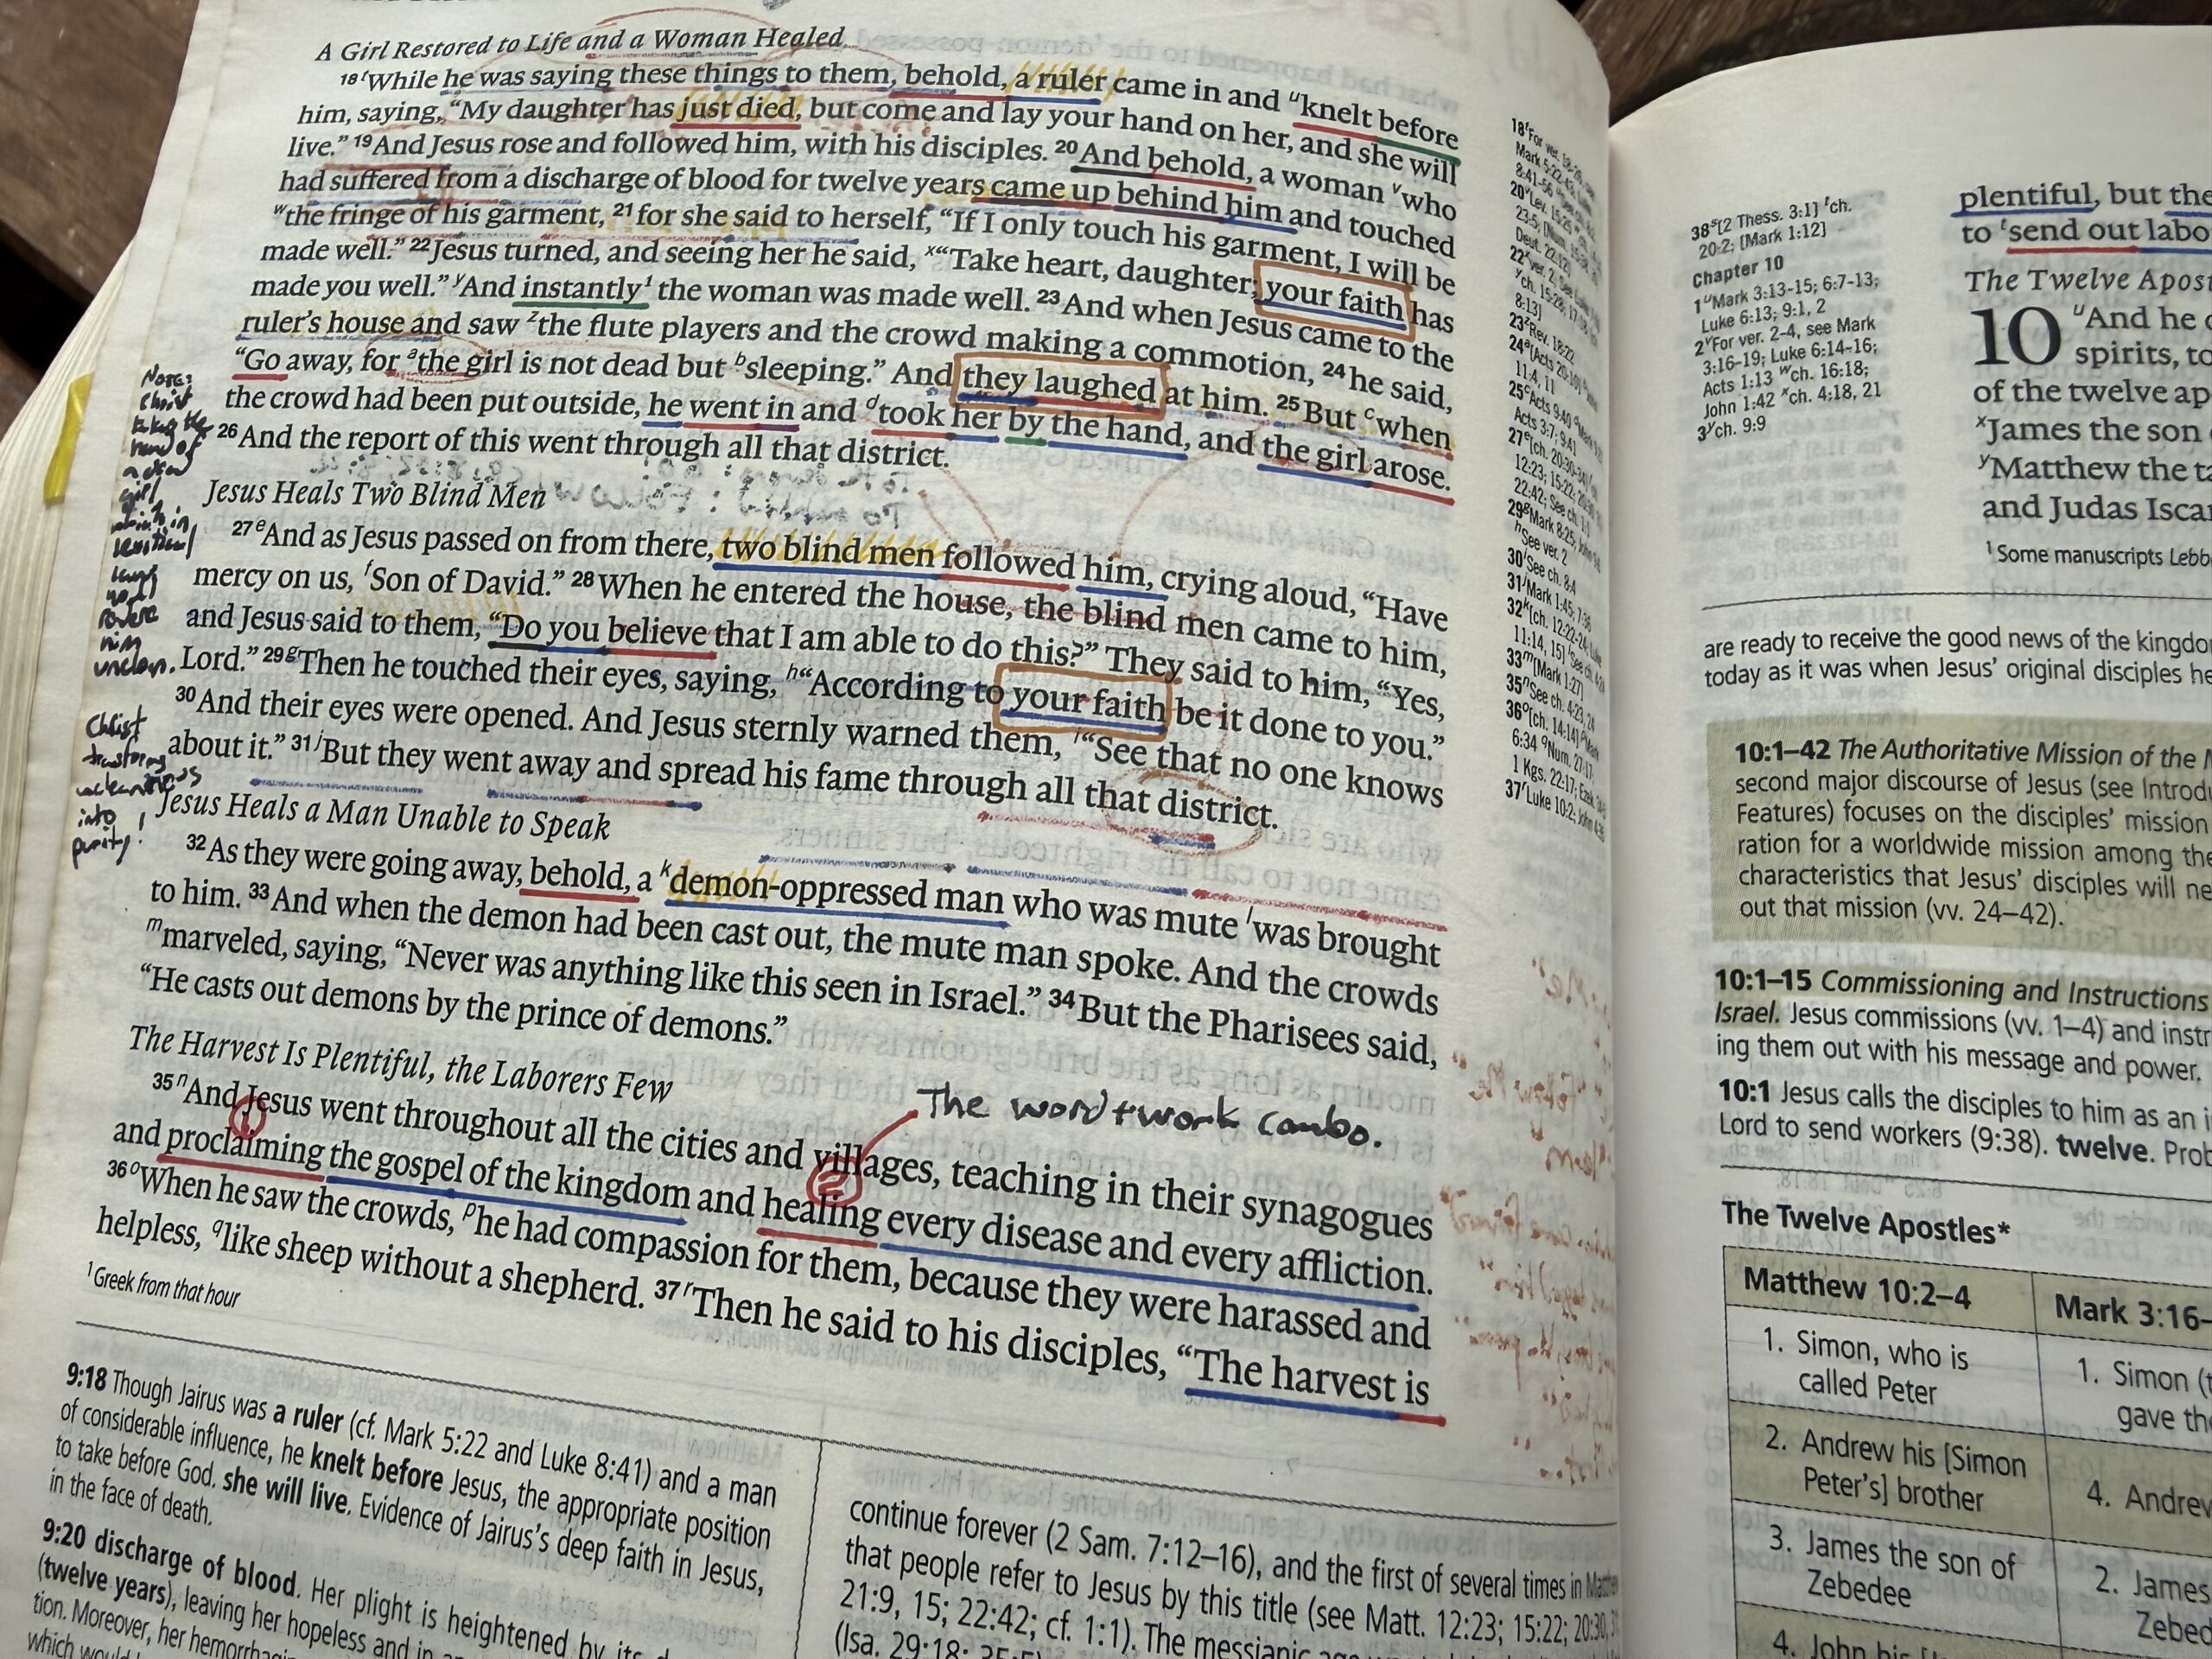 A Girl Restored to Life and a Woman Healed
18 t While he was saying these things to them, behold, a ruler came in and u knelt before
him, saying, “My daughter has just died, but come and lay your hand on her, and she will
live.” 19 And Jesus rose and followed him, with his disciples. 20 And behold, a woman v who
had suffered from a discharge of blood for twelve years came up behind him and touched
w the fringe of his garment, 21 for she said to herself, “If I only touch his garment, I will be
made well.” 22 Jesus turned, and seeing her he said, x “Take heart, daughter; your faith has
made you well.” y And instantly 1 the woman was made well. 23 And when Jesus came to the
ruler’s house and saw z the flute players and the crowd making a commotion, 24 he said,
“Go away, for a the girl is not dead but b sleeping.” And they laughed at him. 25 But c when
the crowd had been put outside, he went in and d took her by the hand, and the girl arose.
26 And the report of this went through all that district.
Jesus Heals Two Blind Men
27 e And as Jesus passed on from there, two blind men followed him, crying aloud, “Have
mercy on us, f Son of David.” 28 When he entered the house, the blind men came to him,
and Jesus said to them, “Do you believe that I am able to do this?” They said to him, “Yes,
Lord.” 29 g Then he touched their eyes, saying, h “According to your faith be it done to you.”
30 And their eyes were opened. And Jesus sternly warned them, i “See that no one knows
about it.” 31 j But they went away and spread his fame through all that district.
Jesus Heals a Man Unable to Speak
32 As they were going away, behold, a k demon-oppressed man who was mute l was brought
to him. 33 And when the demon had been cast out, the mute man spoke. And the crowds
m marveled, saying, “Never was anything like this seen in Israel.” 34 But the Pharisees said,
“He casts out demons by the prince of demons.”
The Harvest Is Plentiful, the Laborers Few
The word + work combo.
35 n And Jesus went throughout all the cities and villages, teaching in their synagogues
1
2
and proclaiming the gospel of the kingdom and healing every disease and every affliction.
36 o When he saw the crowds, p he had compassion for them, because they were harassed and
helpless, q like sheep without a shepherd. 37 r Then he said to his disciples, “The harvest is
1 Greek from that hour
Note:
Christ
taking the
hand of
a dead
girl
in
levitical
laws
would
render
him
unclean.
Christ
transforms
uncleanness
into
purity!
18 t For ver. 18-26,
Mark 5:22-43
8:41-56
20 v Lev. 15:25
23:5; [Num.
Deut. 22:12]
22 x ver. 2
y ch. 15:28; 17:18
8:13]
23 z Rev. 18:22
24 a [Acts 20:10]
11:4, 11
25 c Acts 9:40
Acts 3:7; 9:41
27 e [ch. 20:30-34]
12:23; 15:22;
22:42; See ch. 1:1
29 g Mark 8:25;
h See ver. 2
30 i See ch. 8:4
31 j Mark 1:45; 7:36
32 k [ch. 12:22-24;
11:14, 15]
33 m [Mark 1:27]
35 n See ch. 4:23, 24
36 o [ch. 14:14]
6:34 q Num. 27:17;
1 Kgs. 22:17;
37 r Luke 10:2;
9:18 Though Jairus was a ruler (cf. Mark 5:22 and Luke 8:41) and a man
of considerable influence, he knelt before Jesus, the appropriate position
to take before God. she will live. Evidence of Jairus’s deep faith in Jesus,
in the face of death.
9:20 discharge of blood. Her plight is heightened by its
(twelve years), leaving her hopeless and in
tion. Moreover, her hemorrhaging
which would
continue forever (2 Sam. 7:12–16), and the first of several times in
that people refer to Jesus by this title (see Matt. 12:23; 15:22; 20:30,
21:9, 15; 22:42; cf. 1:1). The messianic age
(Isa. 29:18; 35:5)
38 s [2 Thess. 3:1] t ch.
20:2; [Mark 1:12]
Chapter 10
1 u Mark 3:13-15; 6:7-13;
Luke 6:13; 9:1, 2
2 v For ver. 2-4, see Mark
3:16-19; Luke 6:14-16;
Acts 1:13 w ch. 16:18;
John 1:42 x ch. 4:18, 21
3 y ch. 9:9
plentiful, but the
to t send out labo
The Twelve Apost
10 u And he
spirits, to
of the twelve ap
x James the son
y Matthew the ta
and Judas Isca
1 Some manuscripts Lebb
are ready to receive the good news of the kingdo
today as it was when Jesus’ original disciples he
10:1–42 The Authoritative Mission of the M
second major discourse of Jesus (see Introdu
Features) focuses on the disciples’ mission
ration for a worldwide mission among the
characteristics that Jesus’ disciples will ne
out that mission (vv. 24–42).
10:1–15 Commissioning and Instructions
Israel. Jesus commissions (vv. 1–4) and instr
ing them out with his message and power.
10:1 Jesus calls the disciples to him as an i
Lord to send workers (9:38). twelve. Prob
The Twelve Apostles*
Matthew 10:2–4
Mark 3:16–
1. Simon, who is
called Peter
1. Simon (t
gave th
2. Andrew his [Simon
Peter’s] brother
4. Andrew
3. James the son of
Zebedee
2. James
Zebed
4. John his